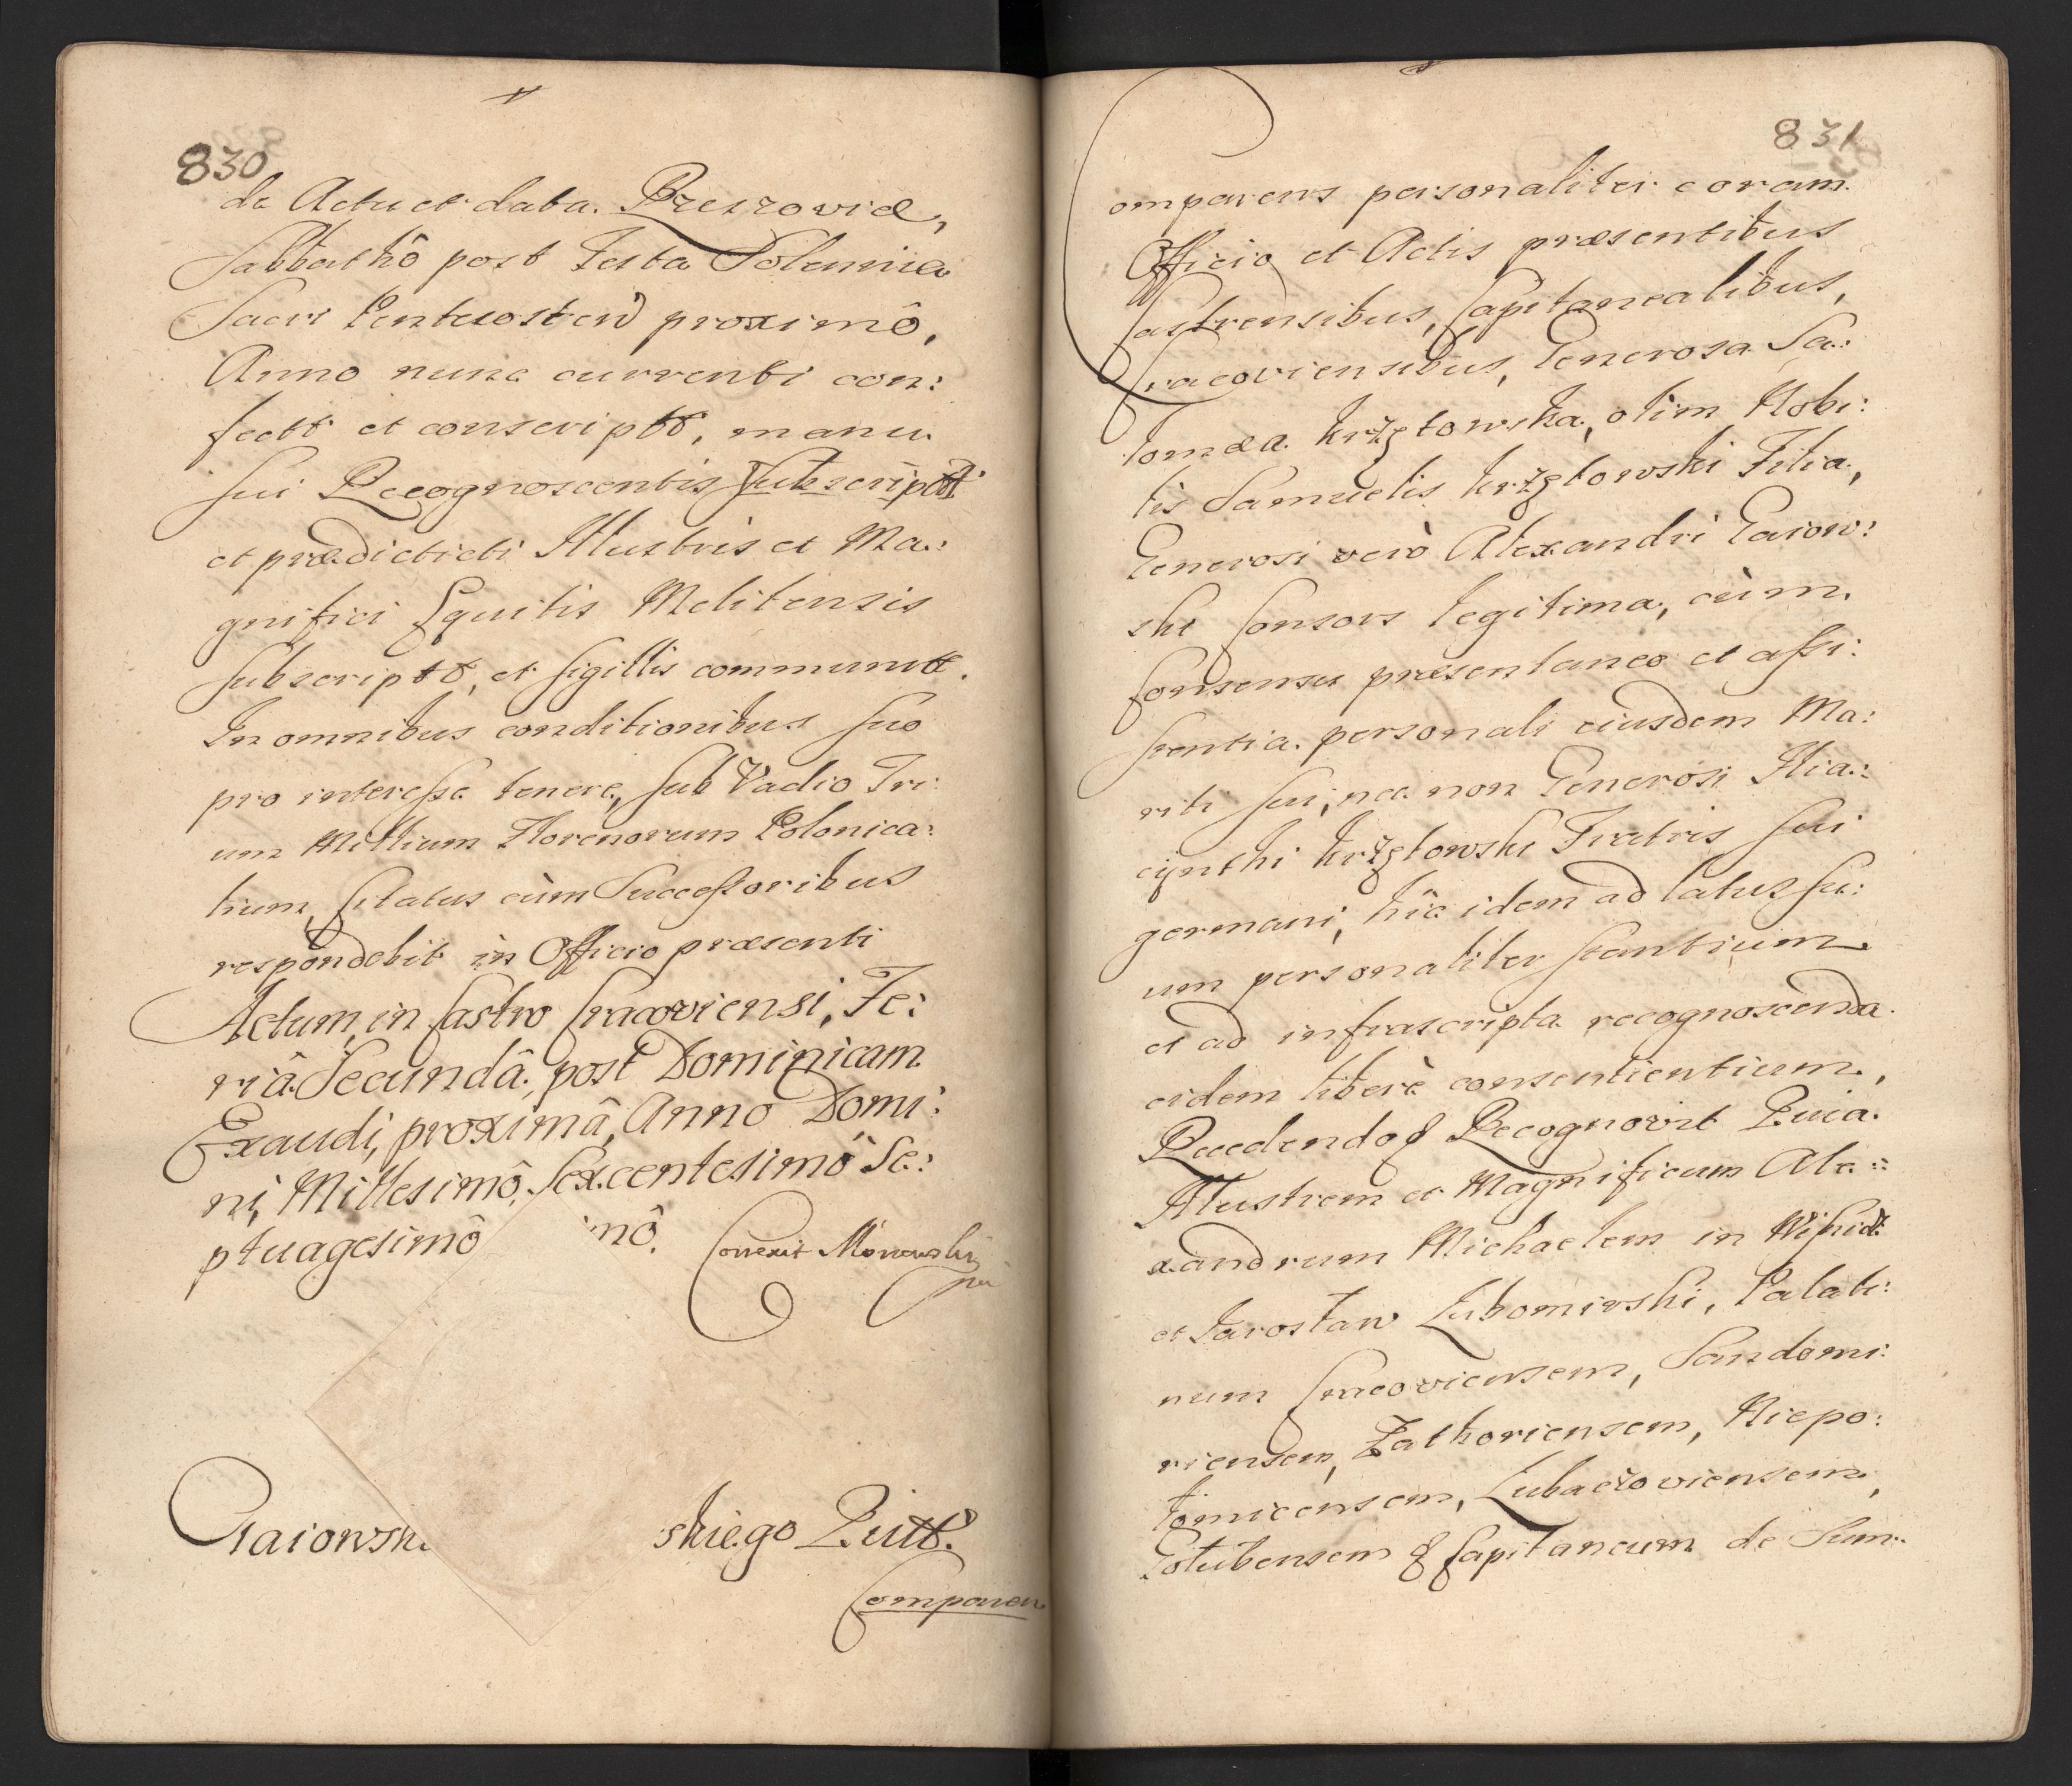 830
de Actu et data. Rzeszoviæ,
Sabbathô post Festa Solennia
Sacri Pentecosten proximô,
Anno nunc currenti con:
fectt et conscriptt, manu
sui Recognoscentis subscriptt
et prædicti Illustris et Ma:
gnifici Equitis Melitensis
subscriptt, et sigillis communitt.
In omnibus conditionibus suo
pro interesse tenere, sub Vadio Tri
um Millium Florenorum Polonica:
lium, Citatus cùm Successoribus
respondebit in Officio præsenti
Actum, in Castro Cracoviensi, Fe:
riâ Secundâ, post Dominicam
Exaudi, proximâ, Anno Domi:
ni, Millesimô, Sexcentesimô Se:
ptuagesimô mô.
Correxit
Gaiowsk skiego Quitt.
Comparen
831
Comparens personaliter coram
Officio et Actis præsentibus
Castrensibus, Capitanealibus,
Cracoviensibus, Generosa Sa:
lomæa Krzętowska, olim Nobi:
lis Samuelis Krzętowski Filia,
Generosi verò Alexandri Gaiow:
ski Consors legitima, cùm
Consensu præsentaneo et assi:
stentia personali eiusdem Ma:
riti sui, nec non Generosi Hia:
cynthi Krzętowski Fratris sui
germani, hîc idem ad latus su:
um personaliter stantium
et ad infrascripta recognoscenda
eidem liberè consentientium,
Recedendoq Recognovit Quia
Illustrem et Magnificum Ale:
xandrum Michaelem in Wisnicz
et Jarosław Lubomirski, Palati:
num Cracoviensem, Sandomi:
riensem, Zathoriensem, Niepo:
łomicensem, Lubaczoviensem,
Golubensem q Capitaneum de Sum